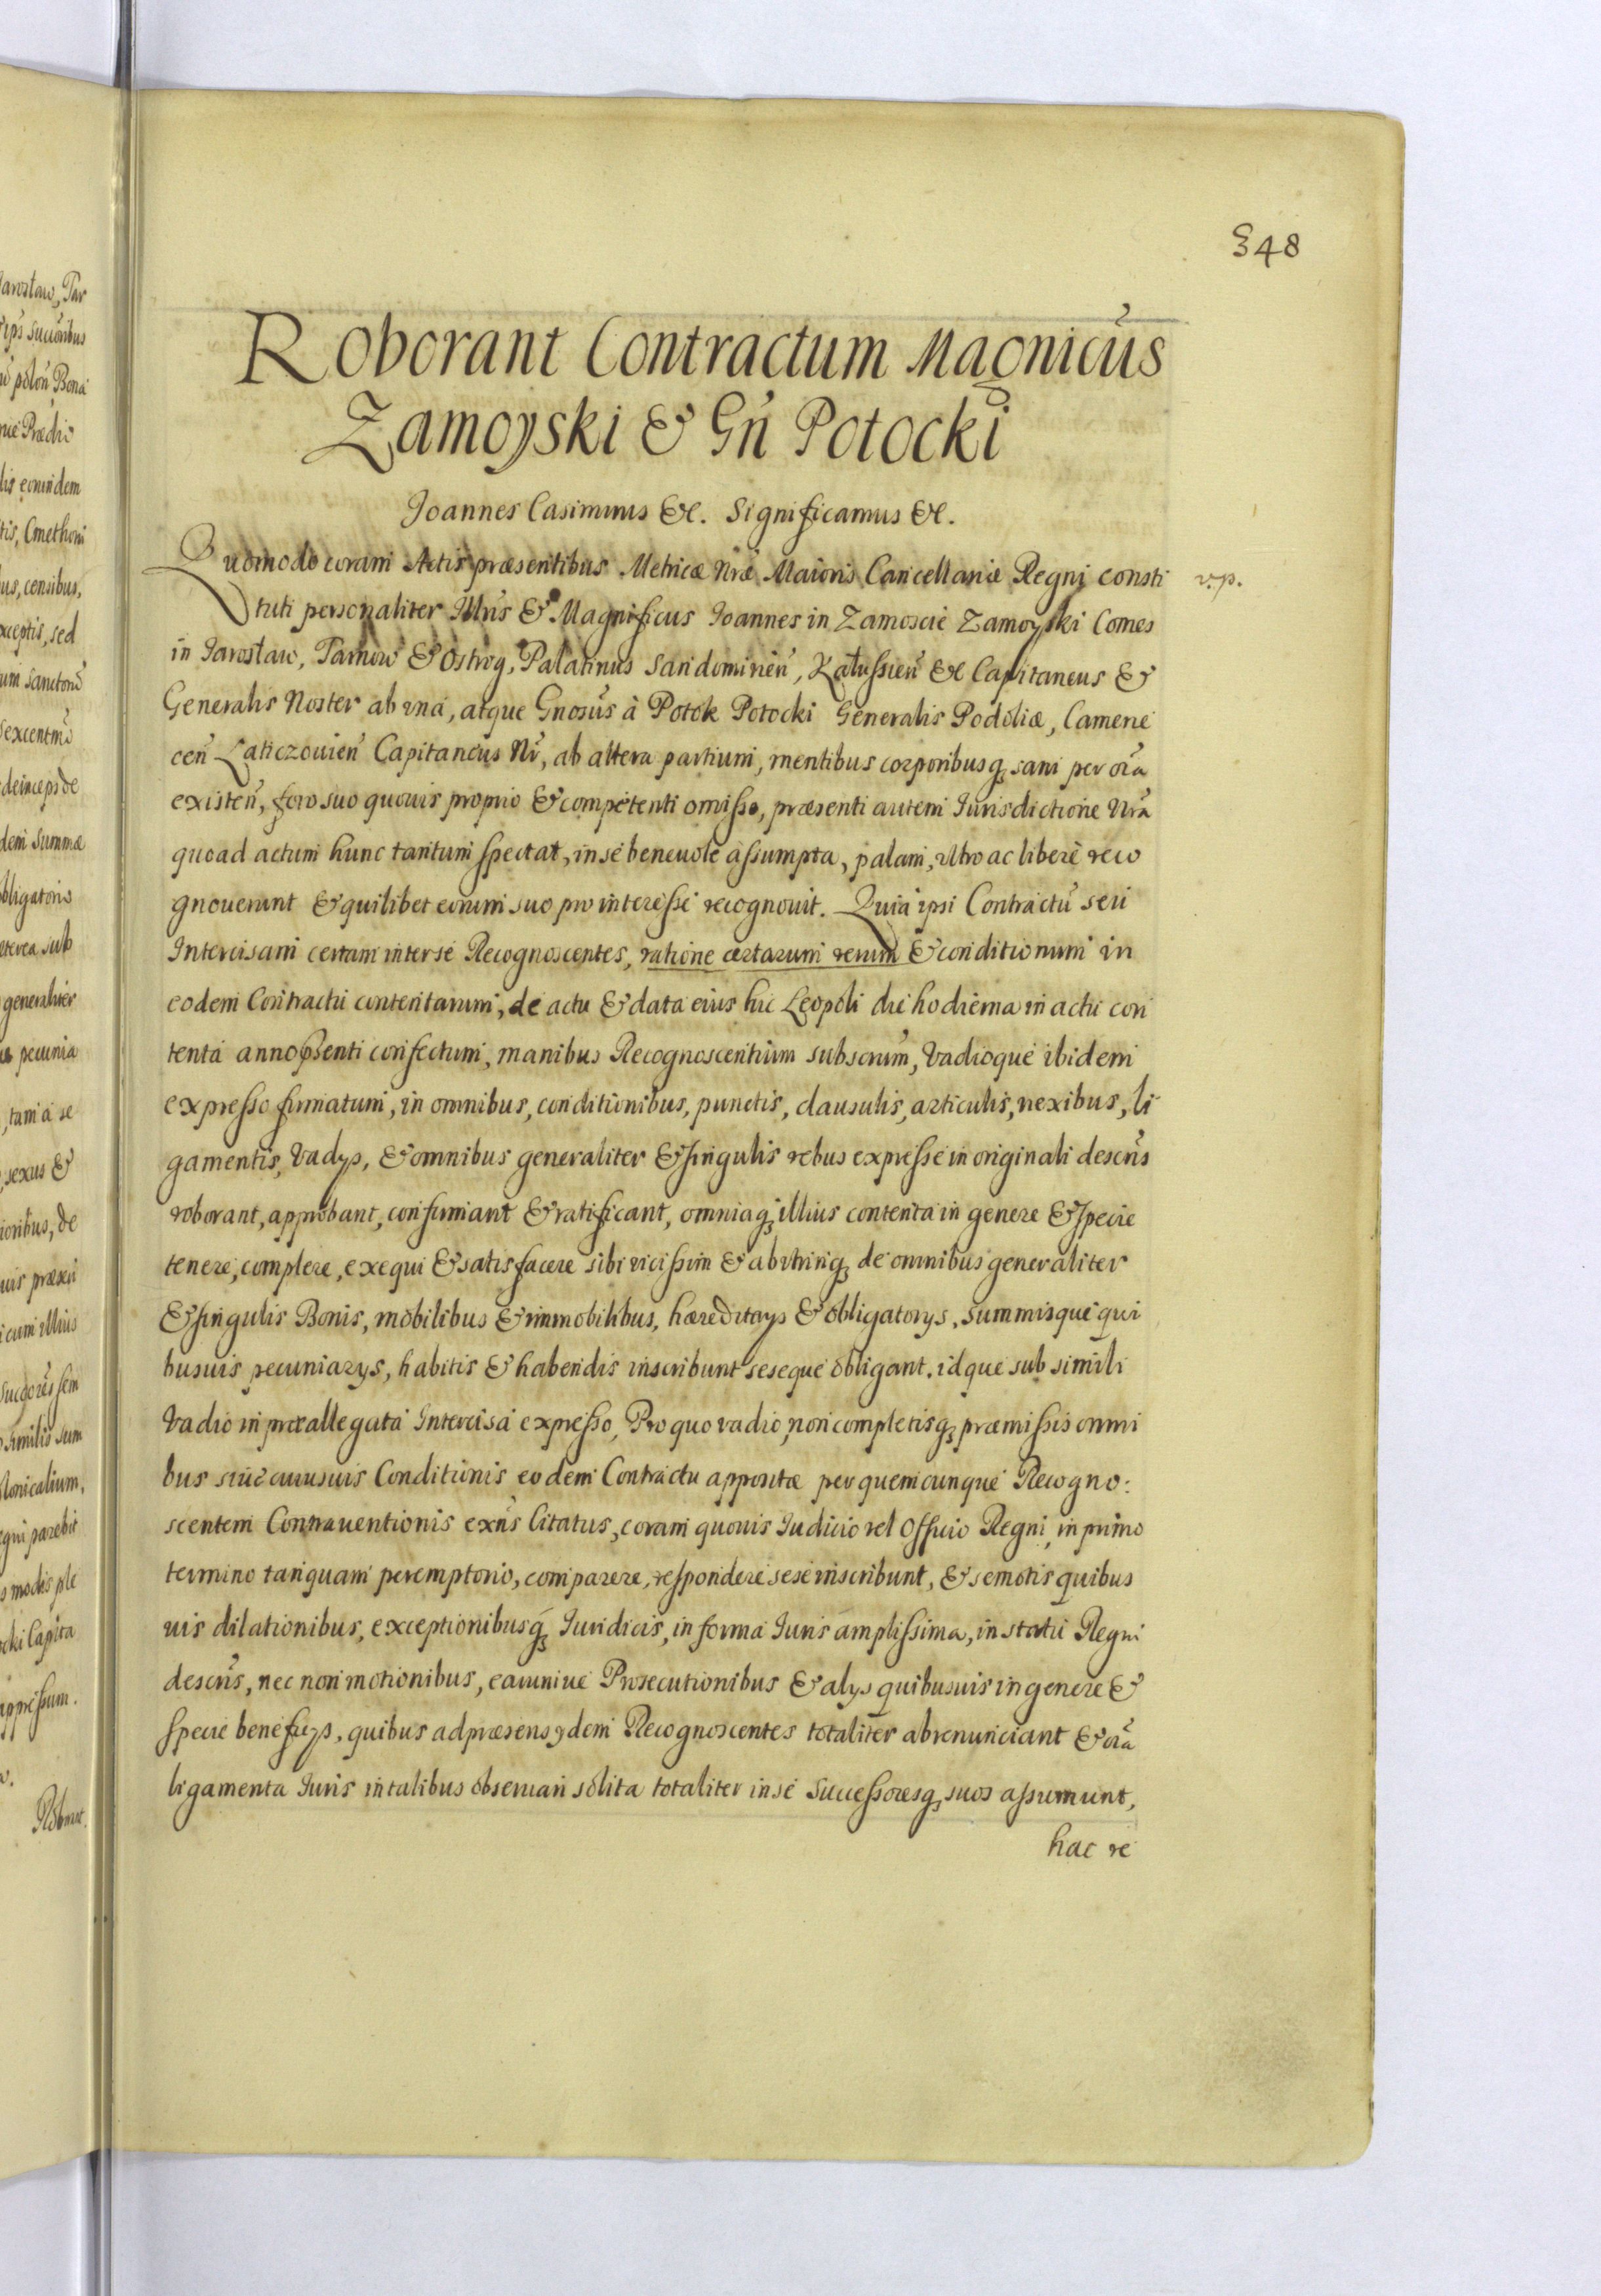 348
Roborant Contractum Magnicus̃
Zamoyski & Gñ Potocki
Joannes Casimirus &c. Significamus &c.
Quomodo coram Actis præsentibus Metricæ Nræ Maioris Cancellariæ Regni consti
v.p.
tuti personaliter Illris & Magnificus Joannes in Zamoscie Zamoyski Comes
in Jarosław, Tarnow & Ostrog, Palatinus Sandomirien̄, Kałussien̄ &c Capitaneus &
Generalis Noster ab una, atque Gnosus̃ à Potok Potocki Generalis Podoliæ, Camene
cen̄ Laticzouien̄ Capitaneus Nr̃, ab altera partium, mentibus corporibusq; sani per oĩa
existen̄, foro suo quouis proprio & competenti omisso, præsenti autem Jurisdictione Nr̃a
quoad actum hunc tantum spectat, in se beneuole assumpta, palam, vltro ac liberè reco
gnouerunt & quilibet eorum suo pro interesse recognouit. Quia ipsi Contractũ seu
Intercisam certam inter se Recognoscentes, ratione certarum rerum & conditionum in
eodem Contractu contentarum, de actu & data eius hic Leopoli die hodierna in actu con
tenta anno pñsenti confectum, manibus Recognoscentium subscrim̃, Vadioque ibidem
expresso firmatum, in omnibus, conditionibus, punctis, clausulis, articulis, nexibus, li
gamentis, Vadys, & omnibus generaliter & singulis rebus expresse in originali descris̃
roborant, approbant, confirmant & ratificant, omniaq; illius contenta in genere & specie
tenere, complere, exequi & satisfacere sibi vicissim & ab vtrinq; de omnibus generaliter
& singulis Bonis, mobilibus & immobilibus, hæreditarys & obligatorys, summisque qui
busuis pecuniarys, habitis & habendis inscribunt seseque obligant. idque sub simili
Vadio in præallegata Intercisa expresso, Pro quo vadio, non completisq; præmissis omni
bus siue cuiusuis Conditionis eodem Contractu appositæ per quemcunque Recogno:
scentem Contrauentionis exñs Citatus, coram quouis Judicio vel Officio Regni, in primo
termino tanquam peremptorio, comparere, respondere sese inscribunt, & semotis quibus
uis dilationibus, exceptionibusq; Juridicis, in forma Juris amplissima, in statu Regni
descris̃, nec non motionibus, earumue Prosecutionibus & alys quibusuis in genere &
specie beneficys, quibus ad præsens ydem Recognoscentes totaliter abrenunciant & oĩa
ligamenta Juris in talibus obseruari solita totaliter in se Successoresq; suos assumunt,
hac re